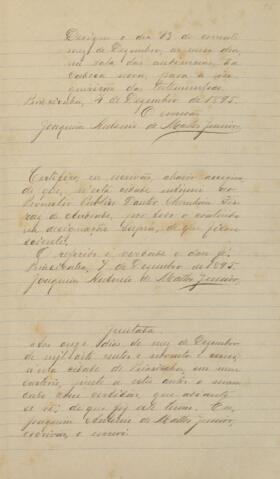 Designo o dia 13 do corrente
mez de Dezembro, ao meio dia,
na sala das audiencias, da
cadeia nova, para a in
quirição das testemunhas.
Piracicaba, 4 de Dezembro de 1895.
O escrivão
Joaquim Antonio de Mattos Junior
Certifico, eu escrivão, abaixo assigna
do que, n'esta cidade intimei ao
Promotor Publico Doutor
de Andrade, por todo o conteúdo
na designação supra, de que ficou
sciente.
O referido é verdade e dou fé.
Piracicaba, 7 de Dezembro de 1895.
Joaquim Antonio de Mattos Junior
Juntada
Aos onze dias do mez de Dezembro
de mil oito centos e noventa e cinco
n'esta cidade de Piracicaba, em meu
cartorio, junto a estes autos o man
dado com certidão, que adiante
se vê; do que fiz este termo. Eu,
Joaquim Antonio de Mattos Junior,
escrivão, o escrevi.